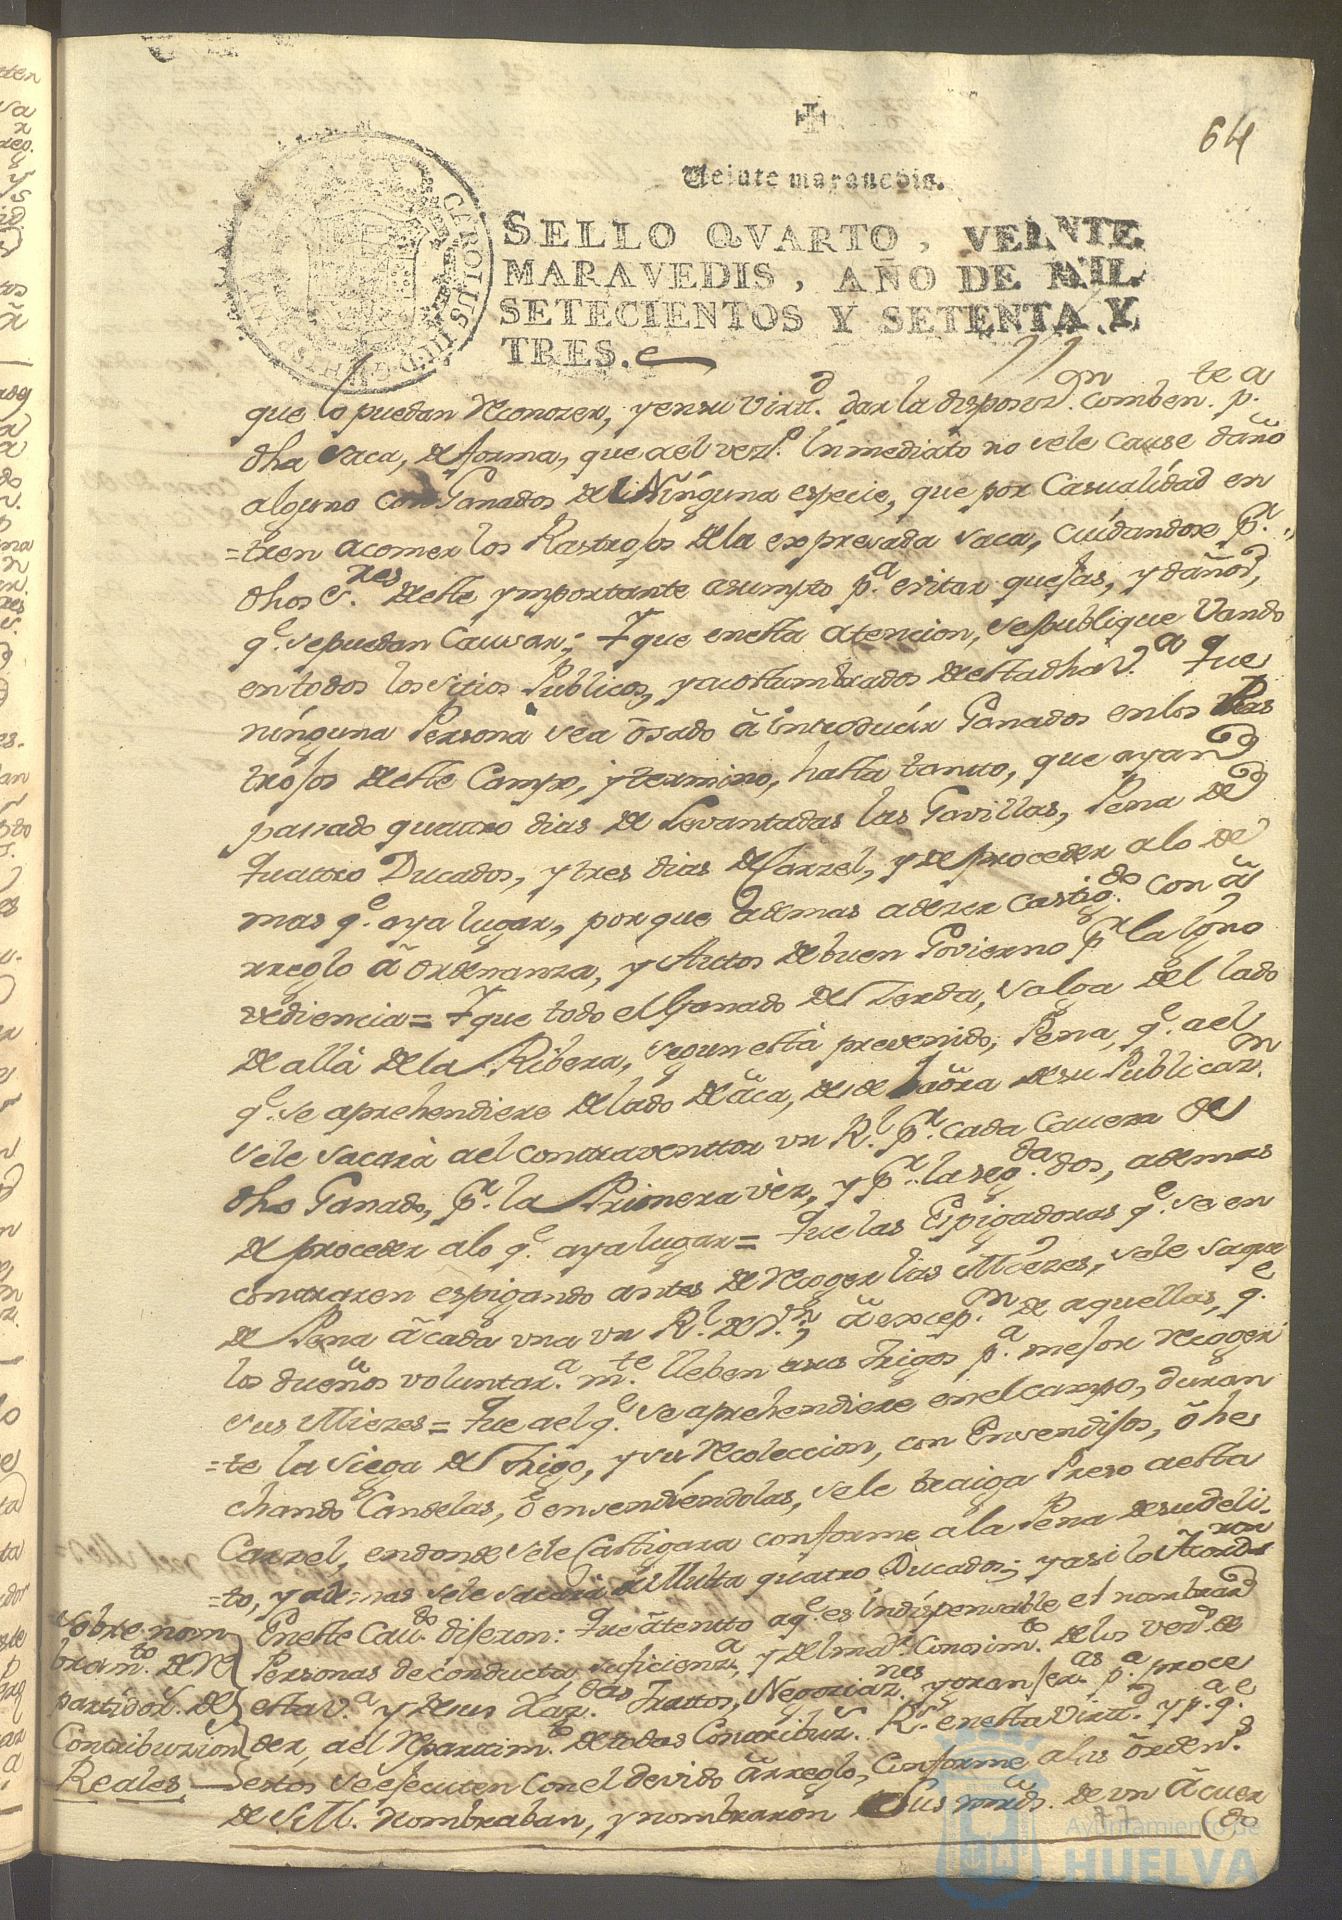 64
Veinte maravedis.
SELLO QVARTO, VEINTE
MARAVEDIS, AÑO DE MIL
SETECIENTOS Y SETENTA Y
TRES.
CAROLUS III D G
que lo puedan reconozer, y en su virtd. dar la disposizon. combente. pa.
dha vaca, de forma, que a el vezo. Inmediato no sele cause daño
alguno con Ganados de Ninguna especie, que por Casualidad en
=tren a comer los Rastrojos de la expresada vaca, cuidandose pr.
dhos Sres. deste ymportante asumpto pa. evitar quejas, y daños,
qe. se puedan Causar; Y que en esta atencion, se publique Vando
en todos los sitios Publicos, y acostumbrados de esta dha Va. Que
ninguna Persona sea osado â introducir Ganados en los Ras
trojos deste Campo, y termino, hasta tanto, que ayan
pasado quatro dias de Levantadas las Gavillas, Pena de
quatro Ducados, y tres dias de Carzel, y de proceder a lo de
mas qe. aya lugar, porque ademas a de ser castigdo. con â
rreglo â ordenanza, y Autos de buen Govierno pr. la Ygno
vediencia = Y que todo el Ganado de Zerda, salga del lado
de allà de la Ribera, segun està prevenido; Pena, qe. a el
qe. se aprehendiere del ado de âca, desde laôra de su Publicazn.
sele sacarà a el contraventtor un Rl. pr. cada Caveza de
dho Ganado, pr. la Primera vèz, y pr. la segda. dos, ademas
de proceder alo qe. aya lugar = Que las Espigadoras qe. se en
contraren espigando antes de recoger las Miezes, sele saque
de Pena â cada una un Rl. de Vn., â excepn. de aquellas, qe.
los dueños voluntara. mte. lleben a sus Trigos pa. mejor recoger
sus Miezes = Que a el qe. se aprehendiere en el campo, duran
=te la siega de Trigo, y su recoleccion, con Ensendijos, ô hes
chando Candelas, ô ensendiendolas, sele traiga Preso a esta
Carzel, en donde sele Castigara conforme a la Pena de su deli-
=to, y ademas sele sacarà de Multa quatro Ducados; y asi lo Acordaron
Sobre nom
bramto. de Re
partidors. de
Contribuzion
Reales
En este Cavdo. dijeron: Que atentto a qe. es indispensable el nombrar
Personas de conducta, suficienza, y del mar. Conosimto. de los vezs. de
esta Va. y de sus Hazdas. Trattos, Negoziaznes. y Granjeras. pa. proce
der, a el Repartimto. de todas Contribuzs. Rs. en esta Virtd. y pa. qe.
estos se ejecuten con el devido ârreglo, Conforme a las ôrdens.
de S.M. Nombraban, y nombraron Sus mrds. de un âcuer
do
Ayuntamiento de
HUELVA